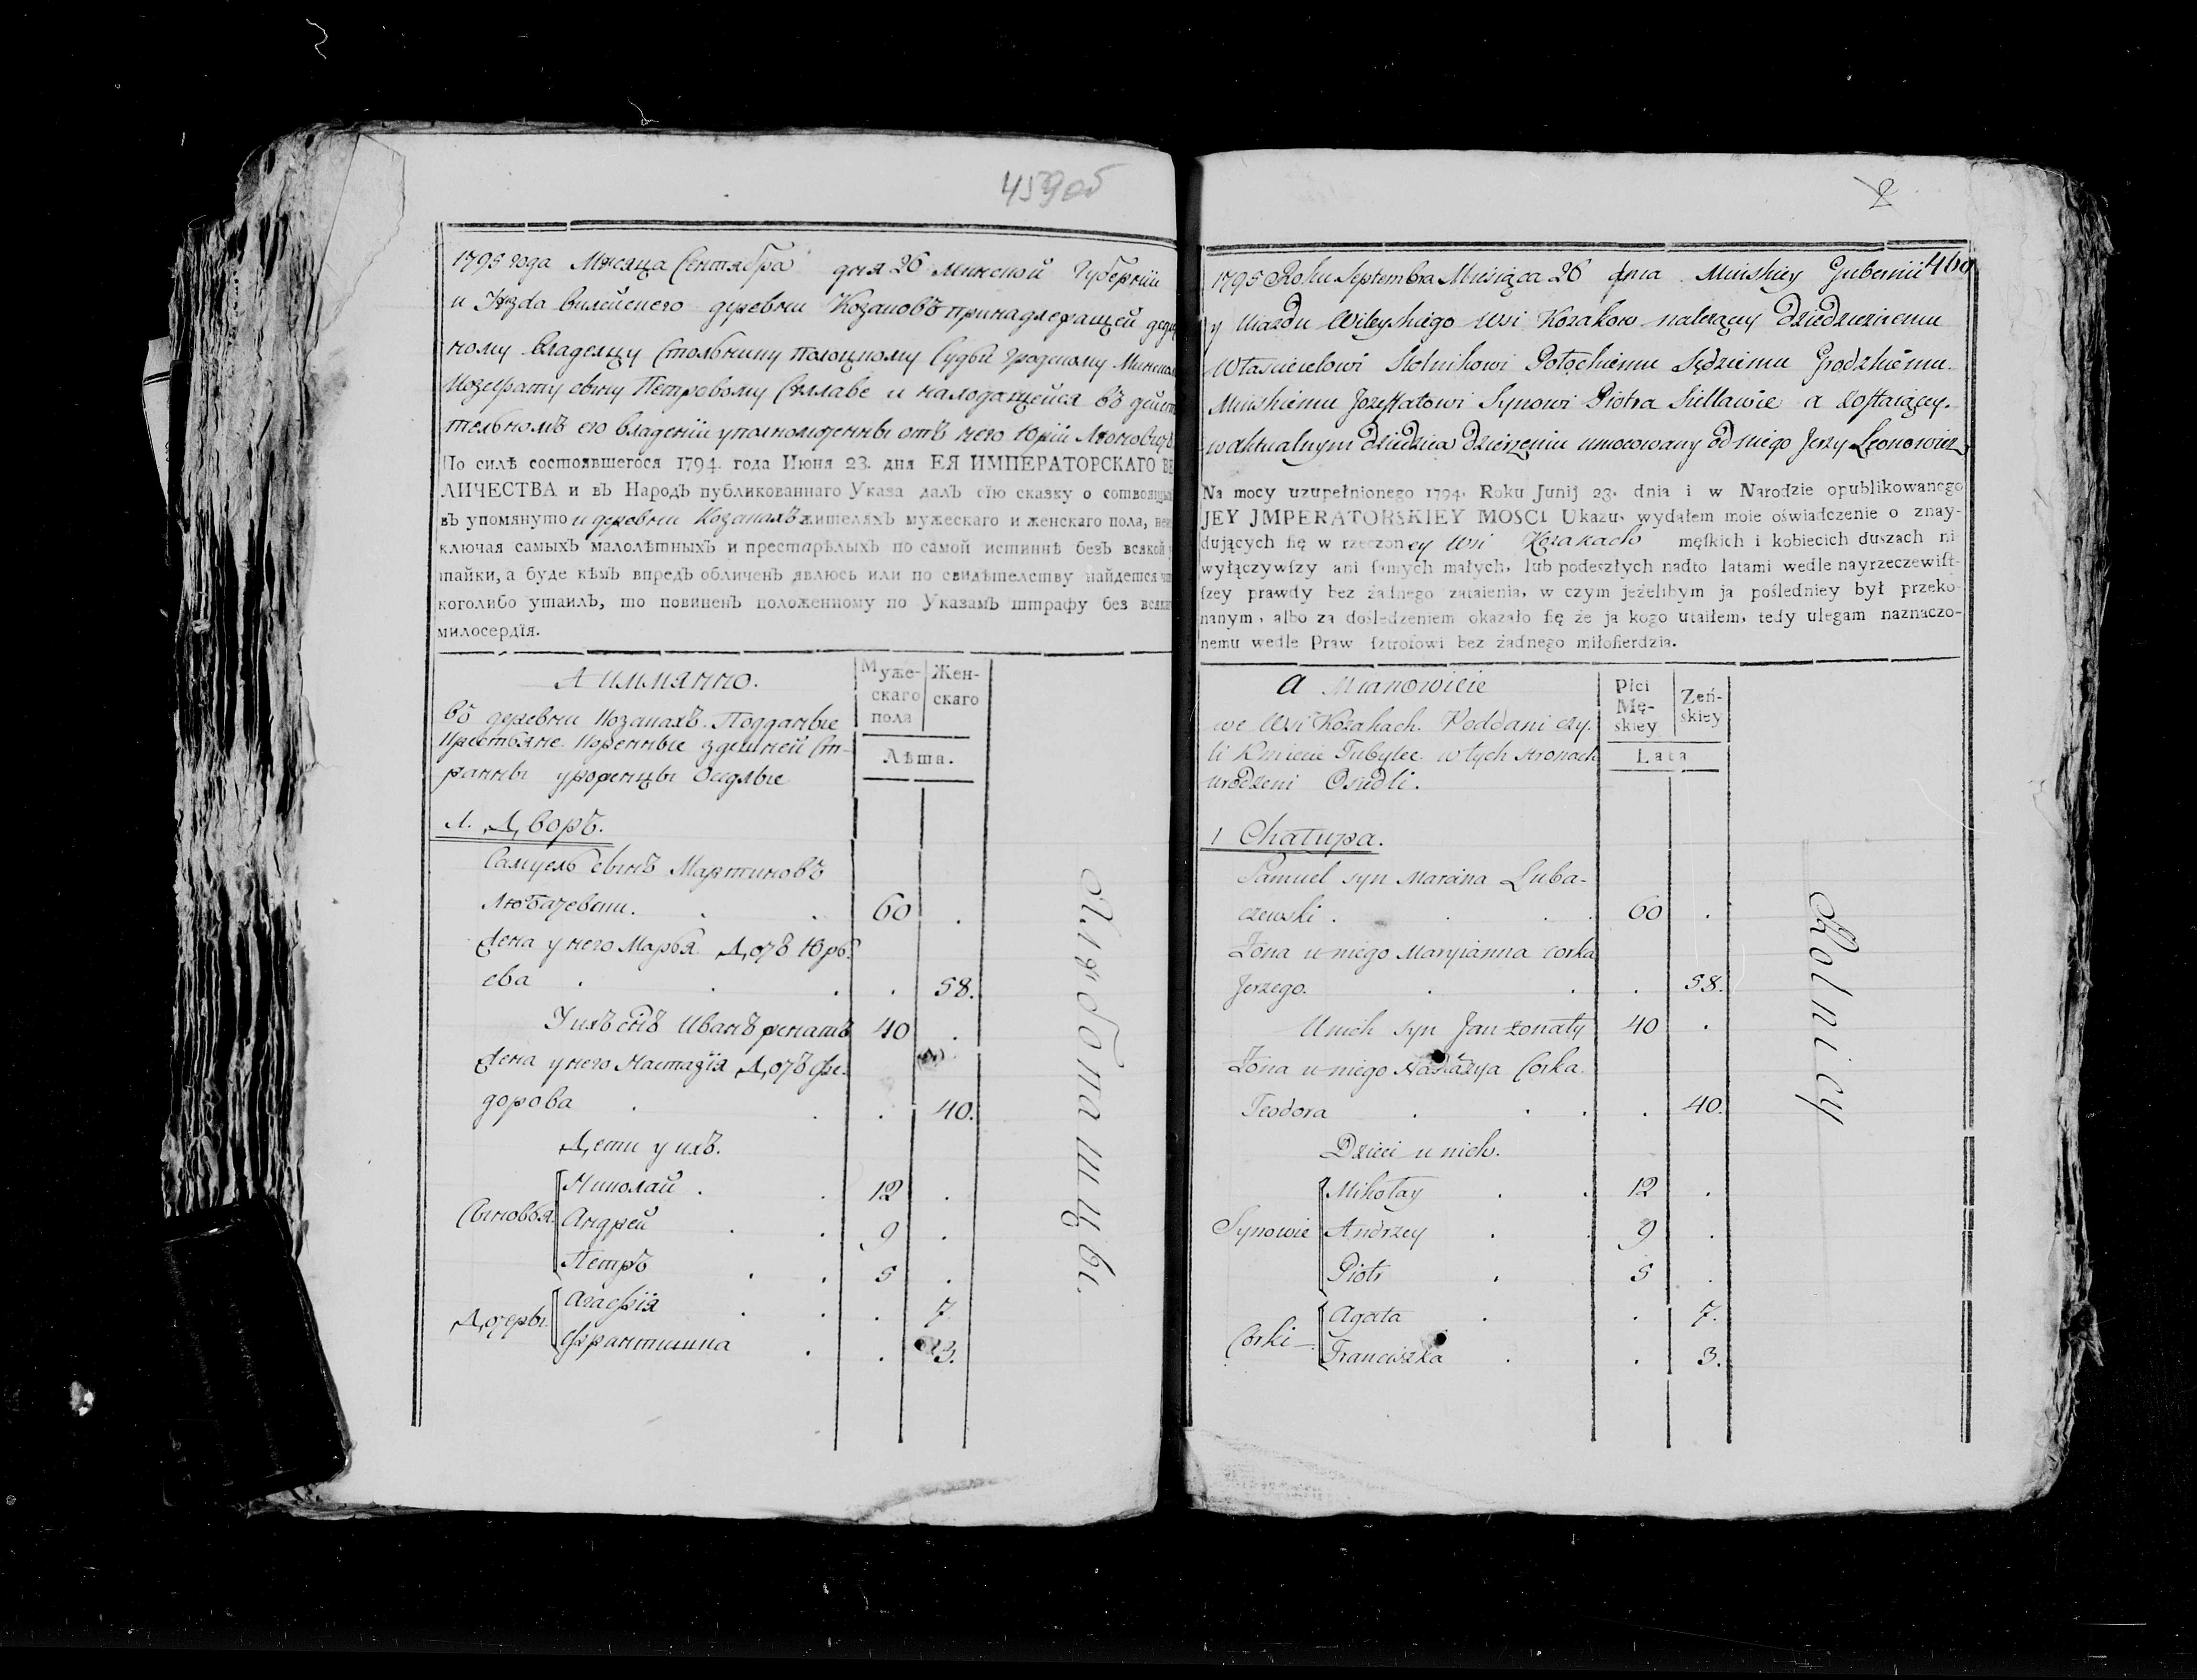 459об
1795 года Мѣсяца Сентября дня 26 Минской Губернїи
и Уезда Вилейскего деревни Козаковъ принадлежащей
ному Владелцу Столънику Полоцкому Судьи Гродскому
Иозефату сыну Петровому Селлаве и находящейся въ
тельномъ его владенїи уполномоченны отъ него Юрїй Леоновичъ
По силѣ состоявшегося 1794. года Июня 23. дня ЕЯ ИМПЕРАТОРСКАГО ВЕ
ЛИЧЕСТВА и въ Народъ публикованнаго Указа далъ сїю сказку о
въ упомянуто и деревни Козакахъ жителяхъ мужескаго и женскаго пола,
ключая самыхъ малолѣтныхъ и престарѣлыхъ по самой истиннѣ безъ всякой
тайки, а буде кѣмъ впредъ обличенъ явлюсь или по свидѣтелству найдется
коголибо утаилъ, то повиненъ положенному по Указамъ штрафу без
милосердїя.
А имиянно.
Муже-
скаго
пола
Жен-
скаго
Лѣта.
въ деревни Козакахъ. Подданые
Крестьяне Коренные здешней Ст-
ранны уроженцы Оседлые
1. Дворъ.
Самуель сынъ Мартиновъ
Любачевски. . . 60 .
Жена у него Марья Дочь Юрь-
ева . . . . 58.
У ихъ снъ Иванъ женатъ 40 .
Жена у него Настазїя Дочь Фе-
дорова . . . 40.
Дети у ихъ.
Сыновья
Николай . . 12 .
Андрей . . 9 .
Петръ . . 5 .
Дочеры
Агафїя . . . 7
Франтишка . . 3.
Хлѣботашцы.
460
1795 Roku Septembra Miesiąca 26 dnia Mińskiey Gubernii
y Uiazdu Wileyskiego Wsi Kozakow nalezący Dziedzicznemu
Własicielowi Stolnikowi Połockiemu Sędziemu Grodzkiemu
Minskiemu Jozeffatowi Synowi Piotra Siellawie a zostaiącey
w aktualnym dziedzica Dzierzeniu umocowany od niego Jerzy Leonowicz
Na mocy uzupełnionego 1794. Roku Junij 23. dnia i w Narodzie opublikowanego
JEY JMPERATORSKIEY MOSCI Ukazu, wydałem moie oświadczenie o znay-
dujących ſię w rzeczoney Wsi Kozakach męſkich i kobiecich duszach ni
wyłączywſzy ani ſamych małych, lub podeszłych nadto latami wedle nayrzeczewiſt-
ſzey prawdy bez żadnego zataienia, w czym jeżelibym ja pośledniey był przeko-
nanym, albo za dośledzeniem okazało ſię że ja kogo utaiłem, tedy ulegam naznaczo-
nemu wedle Praw ſztrofowi bez żadnego miłoſierdzia.
a Mianowicie
Płci
Mę-
skiey
Zeń-
skiey
Lata
we Wsi Kozakach. Poddani czy-
li Kmiecie Tubylce w tych stronach
urodzeni Osiedli.
1 Chałupa.
Samuel syn Marcina Luba-
czewski . . . 60 .
Żona u niego Maryianna corka
Jerzego. . . . 58.
U nich syn Jan zonaty 40 .
Żona u niego Nastazya Corka
Teodora . . . . 40.
Dzieci u nich.
Synowie
Mikołay . . 12 .
Andrzey . . 9 .
Piotr . 5 .
Corki
Agata . . 7.
Franciszka . . 3.
Rolnicy